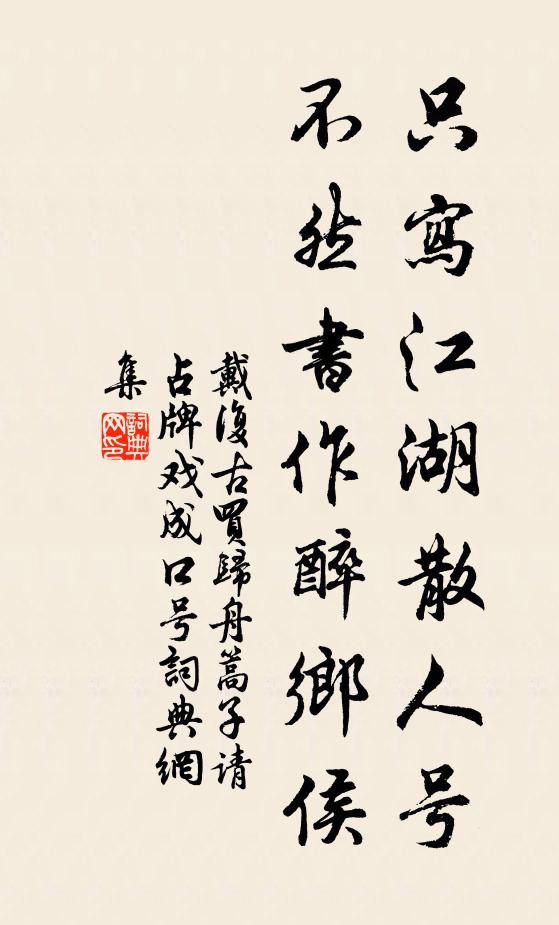 只寫江湖散人号
不然書作醉鄉侯
戴復古買歸舟篙子请
占牌戏成口号詞典網
集
詞典
网印